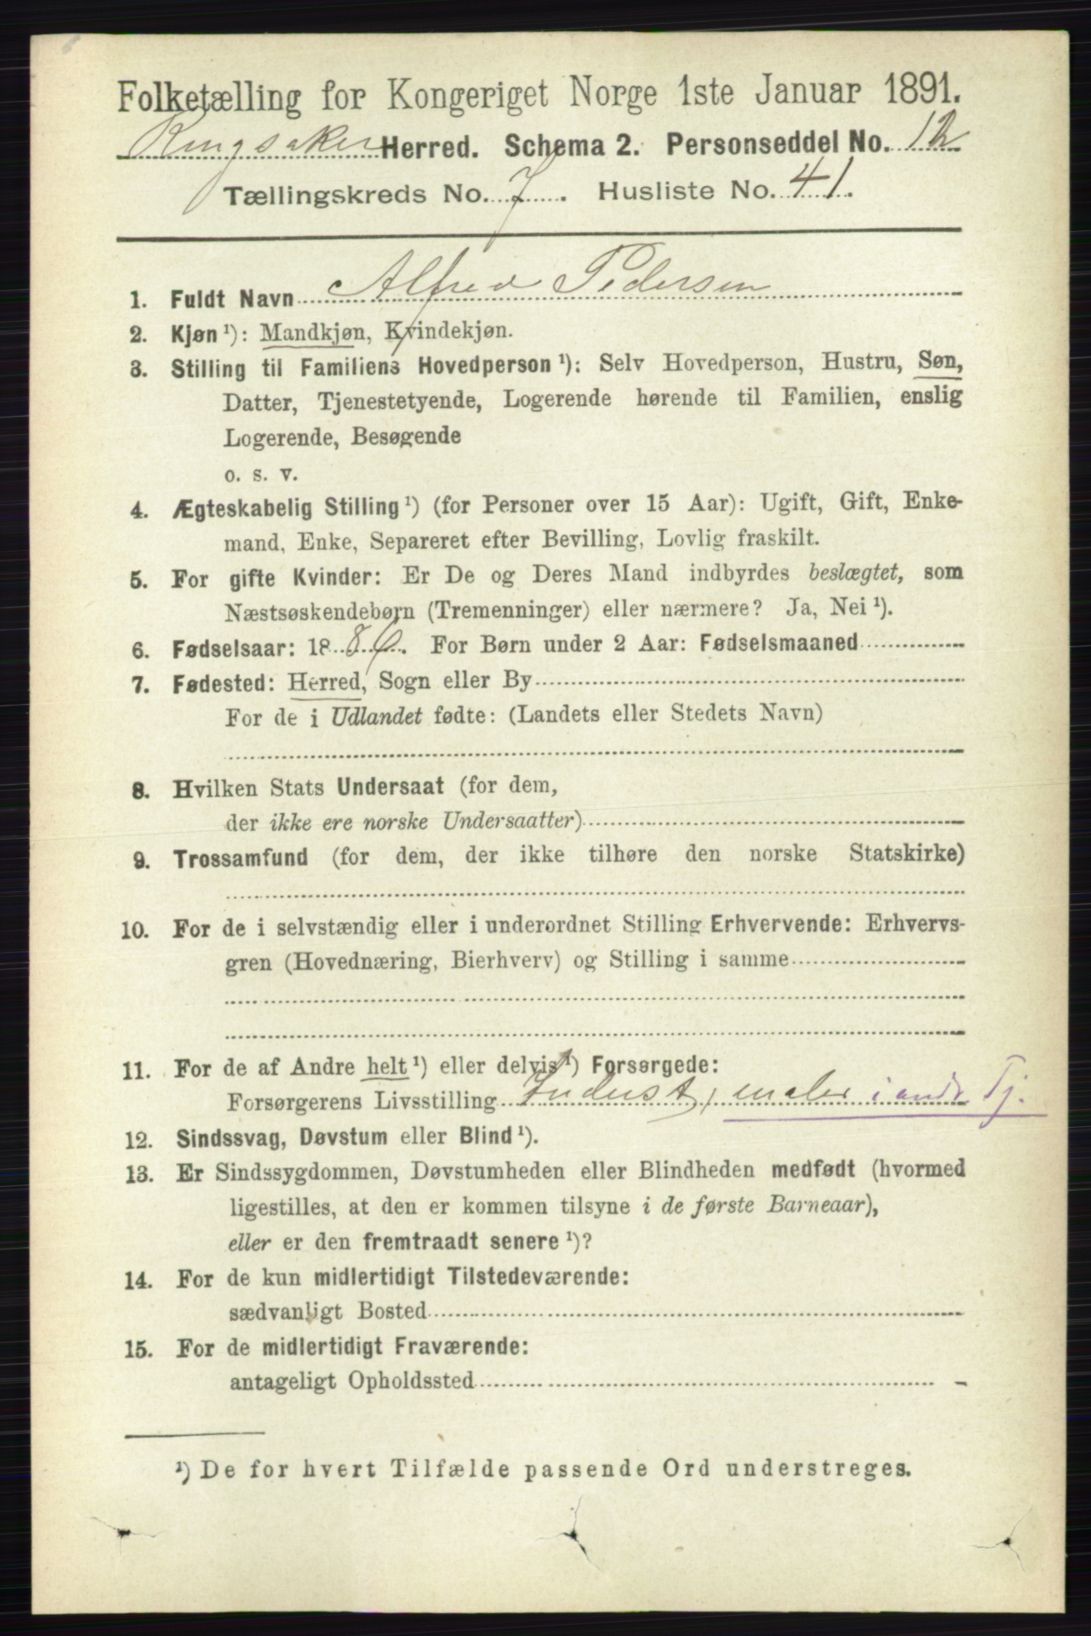 Folketælling for Kongeriget Norge 1ste Januar 1891.
Ringsaker Herred. Schema 2. Personseddel No. 12
Tællingskreds No. 7. Husliste No. 41.
1. Fuldt Navn Alfred Pedersen
2. Kjøn ¹): Mandkjøn, Kvindekjøn.
3. Stilling til Familiens Hovedperson ¹): Selv Hovedperson, Hustru, Søn,
Datter, Tjenestetyende, Logerende hørende til Familien, enslig
Logerende, Besøgende
o. s. v.
4. Ægteskabelig Stilling ¹) (for Personer over 15 Aar): Ugift, Gift, Enke-
mand, Enke, Separeret efter Bevilling, Lovlig fraskilt.
5. For gifte Kvinder: Er De og Deres Mand indbyrdes beslægtet, som
Næstsøskendebørn (Tremenninger) eller nærmere? Ja, Nei ¹).
6. Fødselsaar: 1886. For Børn under 2 Aar: Fødselsmaaned
7. Fødested: Herred, Sogn eller By
For de i Udlandet fødte: (Landets eller Stedets Navn)
8. Hvilken Stats Undersaat (for dem,
der ikke ere norske Undersaatter)
9. Trossamfund (for dem, der ikke tilhøre den norske Statskirke)
10. For de i selvstændig eller i underordnet Stilling Erhvervende: Erhvervs-
gren (Hovednæring, Bierhverv) og Stilling i samme
11. For de af Andre helt ¹) eller delvist ¹) Forsørgede:
Forsørgerens Livsstilling Inderst, maler i andr Tj.
12. Sindssvag, Døvstum eller Blind ¹).
13. Er Sindssygdommen, Døvstumheden eller Blindheden medfødt (hvormed
ligestilles, at den er kommen tilsyne i de første Barneaar),
eller er den fremtraadt senere ¹)?
14. For de kun midlertidigt Tilstedeværende:
sædvanligt Bosted
15. For de midlertidigt Fraværende:
antageligt Opholdssted
¹) De for hvert Tilfælde passende Ord understreges.